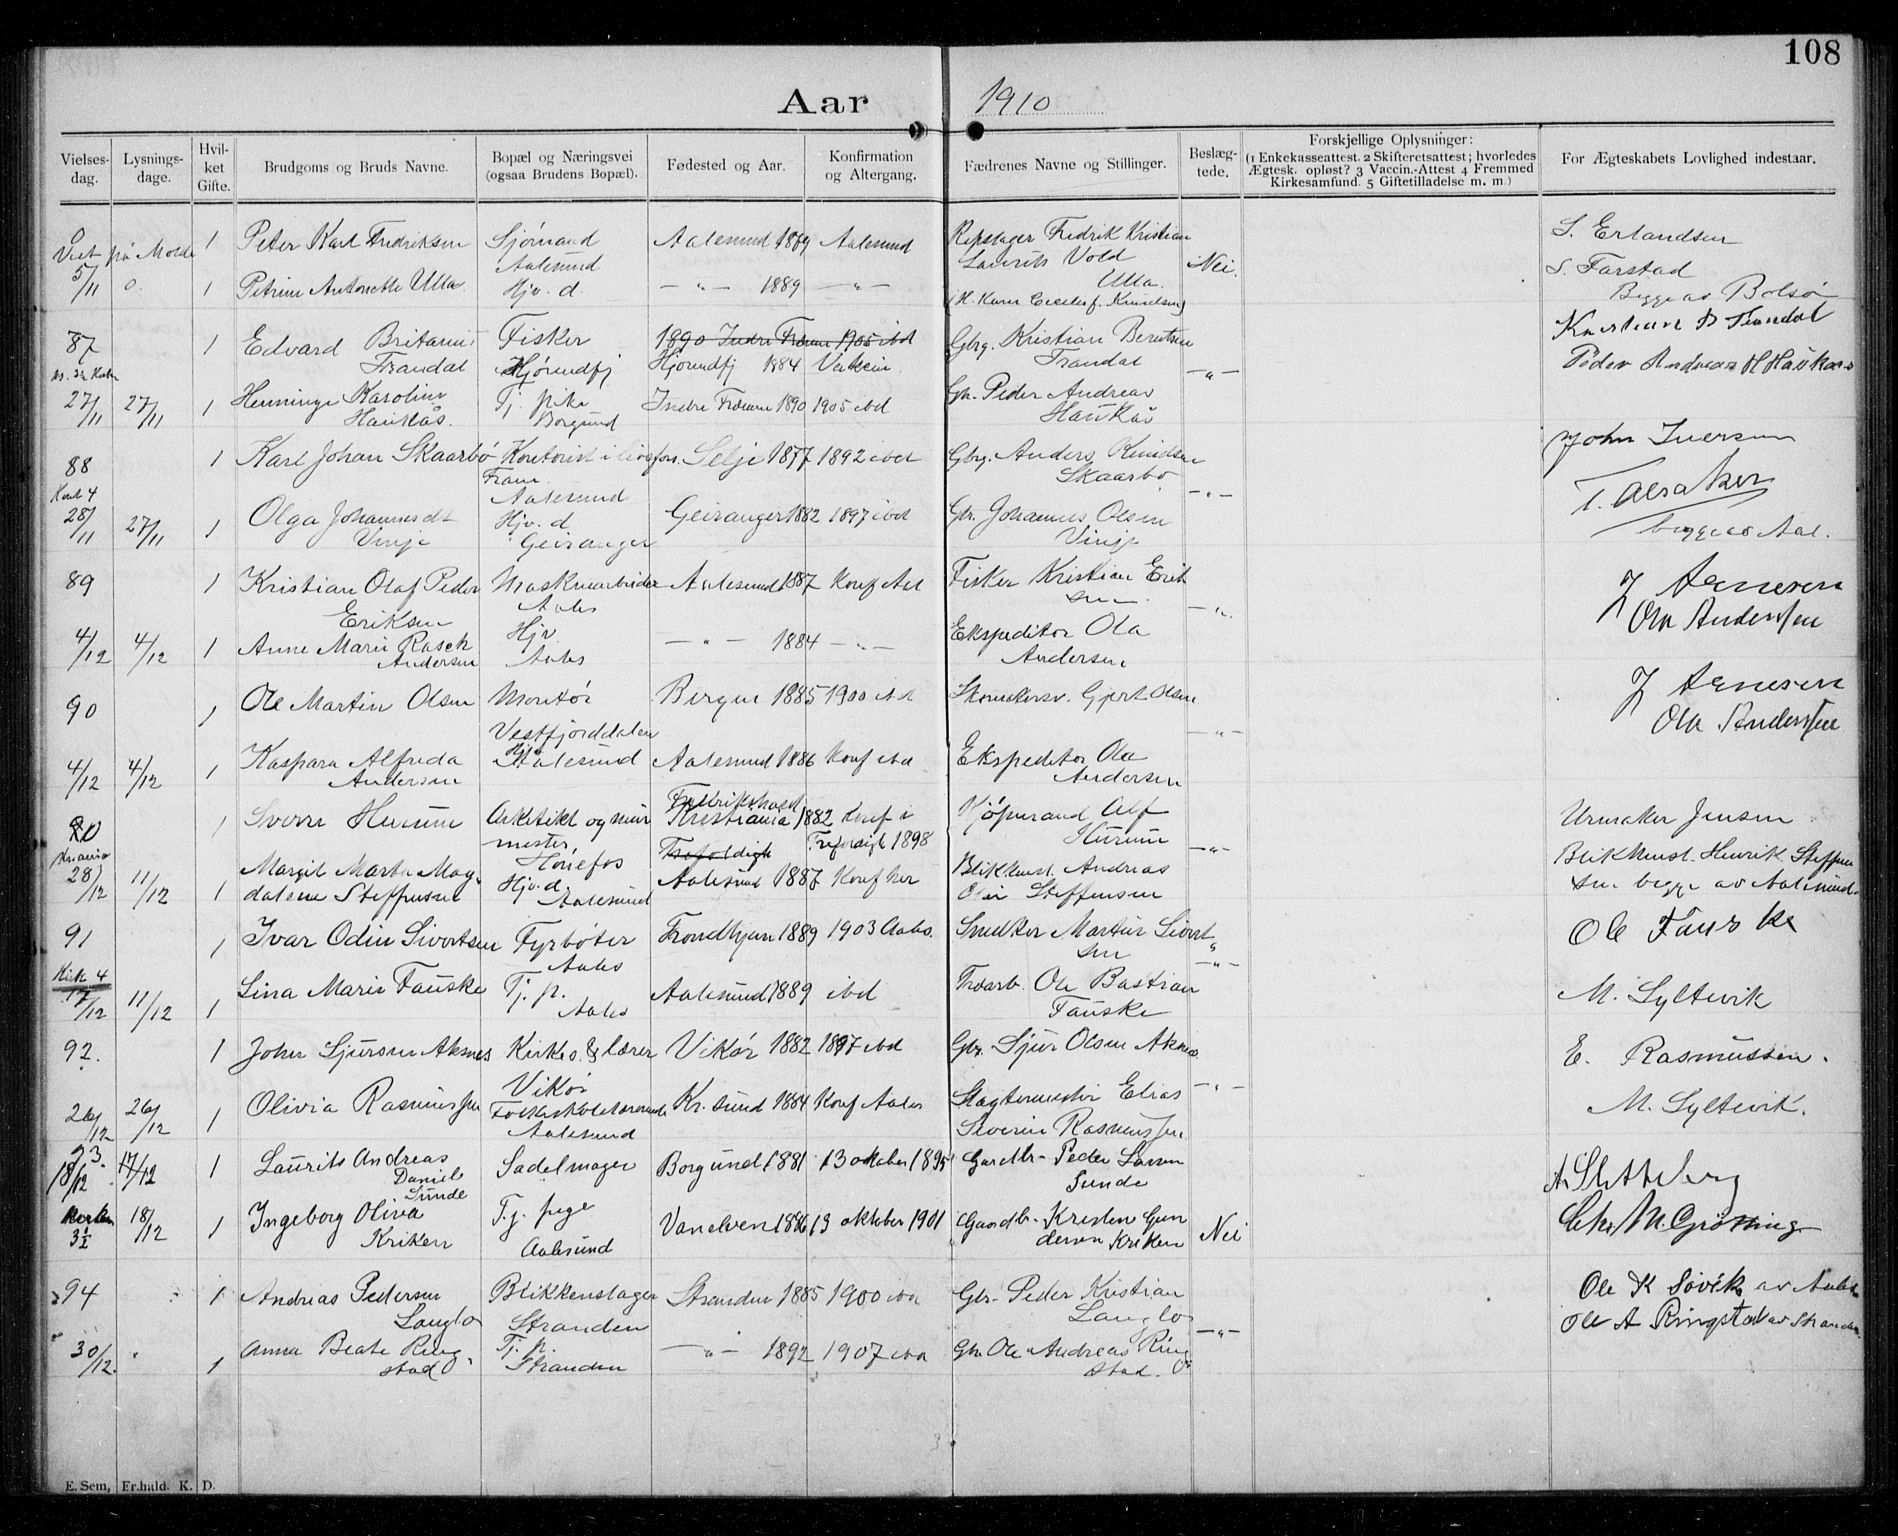 108
Aar 1910
Vielses-dag. Lysnings-dage. Hvil-ket Gifte. Brudgoms og Bruds Navne. Bopæl og Næringsvei (ogsaa Brudens Bopæl). Fødested og Aar. Konfirmation og Altergang. Fædrenes Navne og Stillinger. Beslæg-tede. Forskjellige Oplysninger: (1 Enkekasseattest. 2 Skifteretsattest; hvorledes Ægtesk. opløst? 3 Vaccin.-Attest 4 Fremmed Kirkesamfund. 5 Giftetilladelse m. m.) For Ægteskabets Lovlighed indestaar.
1 Peter Karl Fredriksen Sjømand Aalesund 1889 Aalesund Repslager Fredrik Kristian S. Erlandsen
Viet på Molde Aalesund Laurits Vold Nei. S. Farstad
5/11 1 Petrine Antonette Ulla Hjv. d. —„— 1889 —„— Ulla Begge av Bolsø
87 1 Edvard Fisker 1890 Indre 1905 ibd Gbrg. Kristian Berntsen
Trandal Hjørundfj Hjørundfj 1884 Trandal —„— Peder Andreas H Haukaas
27/11 27/11 1 Karoline Tj. pike Indre 1890 1905 ibd Gbr. Peder Andreas
Haukås. Borgund Haukås
88 1 Karl Johan Skaarbø Kontorist i Selje 1877 1892 ibd Gbrg. Anders Knudsen John Iversen
Fram. Skaarbø
Aalesund —„— T. Alsaker
28/11 27/11 1 Olga Johannesdt Hjv. d Geiranger 1882 1897 ibd Gbr. Johannes Olsen
Vinje Geiranger Vinje begge av Aal.
89 1 Kristian Olaf Peder Maskinarbeider Aalesund 1887 Konf Aal Fisker Kristian Erik
Eriksen Aales sen —„— Ola Anderssen
4/12 4/12 1 Anne Marie Rasch Hjv —„— 1884 —„— Ekspeditør Ola
Andersen Aales Andersen
90 1 Ole Martin Olsen Montør Bergen 1885 1900 ibd Skomakersv. Gjert Olsen
Vestfjorddalen —„— Ola Anderssen
4/12 4/12 1 Kaspara Alfreda Aalesund Aalesund 1886 Konf ibd Ekspeditør Ola
Andersen Andersen
Fredrikshald
90 1 Sverre Hurum Arkitekt og mur Kristiania 1882 Konf i Kjøpmand Alf Urmaker Jensen
mester, Trefoldigh Trefoldigh 1898 Hurum —„—
Margit Marta Mag Hønefos Blikkensl. Andreas Blikkensl. Henrik Steffen
28/12 11/12 1 dalene Steffensen Hjv. d. Aalesund Aalesund 1887 Konf her Steffensen sen begge av Aalesund
91 1 Ivar Odin Sivertsen Fyrbøter Trondhjem 1889 1903 Aales. Snekker Martin Sivert Ole Fauske
Aales sen —„—
Kirk 4
17/12 11/12 1 Lina Marie Fauske Tj. p. Aales Aalesund 1889 ibd Ole Bastian Fauske M. Syltevik
92. 1 John Sjursen Aknes Kirkes. & lærer Vikør 1882 1897 ibd Gbr. Sjur Olsen Aknes E. Rasmussen.
Vikør —„—
26/12 26/12 1 Olivia Rasmussen Folkeskolelærerinde Kr. sund 1884 Konf Aales Slagtermester Elias M. Syltevik.
Aalesund Severin Rasmussen
93. 18/12 17/12 1 Laurits Andreas Sadelmager Borgund 1881 13 oktober 1895 Gardbr. Peder Larsen
Daniel Sunde Sunde
18/12 1 Ingeborg Oliva T.j. pige Vanelven 1886 13 oktober 1901 Gaardbr. Kristen Gun Nei M. Grøtting
3½ Kriken Aalesund dersen Kriken
94 1 Andreas Pedersen Blikkenslager Stranden 1885 1900 ibd Gbr. Peder Kristian Ole K Søvik av Aales
Langlo Stranden Langlo —„— Ole A Ringstad av Stranden
30/12. 1 Anna Beate Ring Tj. p. —„— 1892 1907 ibd Gbr Ole Andreas Ring
stad Stranden stad.
E. Sem, Fr.hald. K. D.